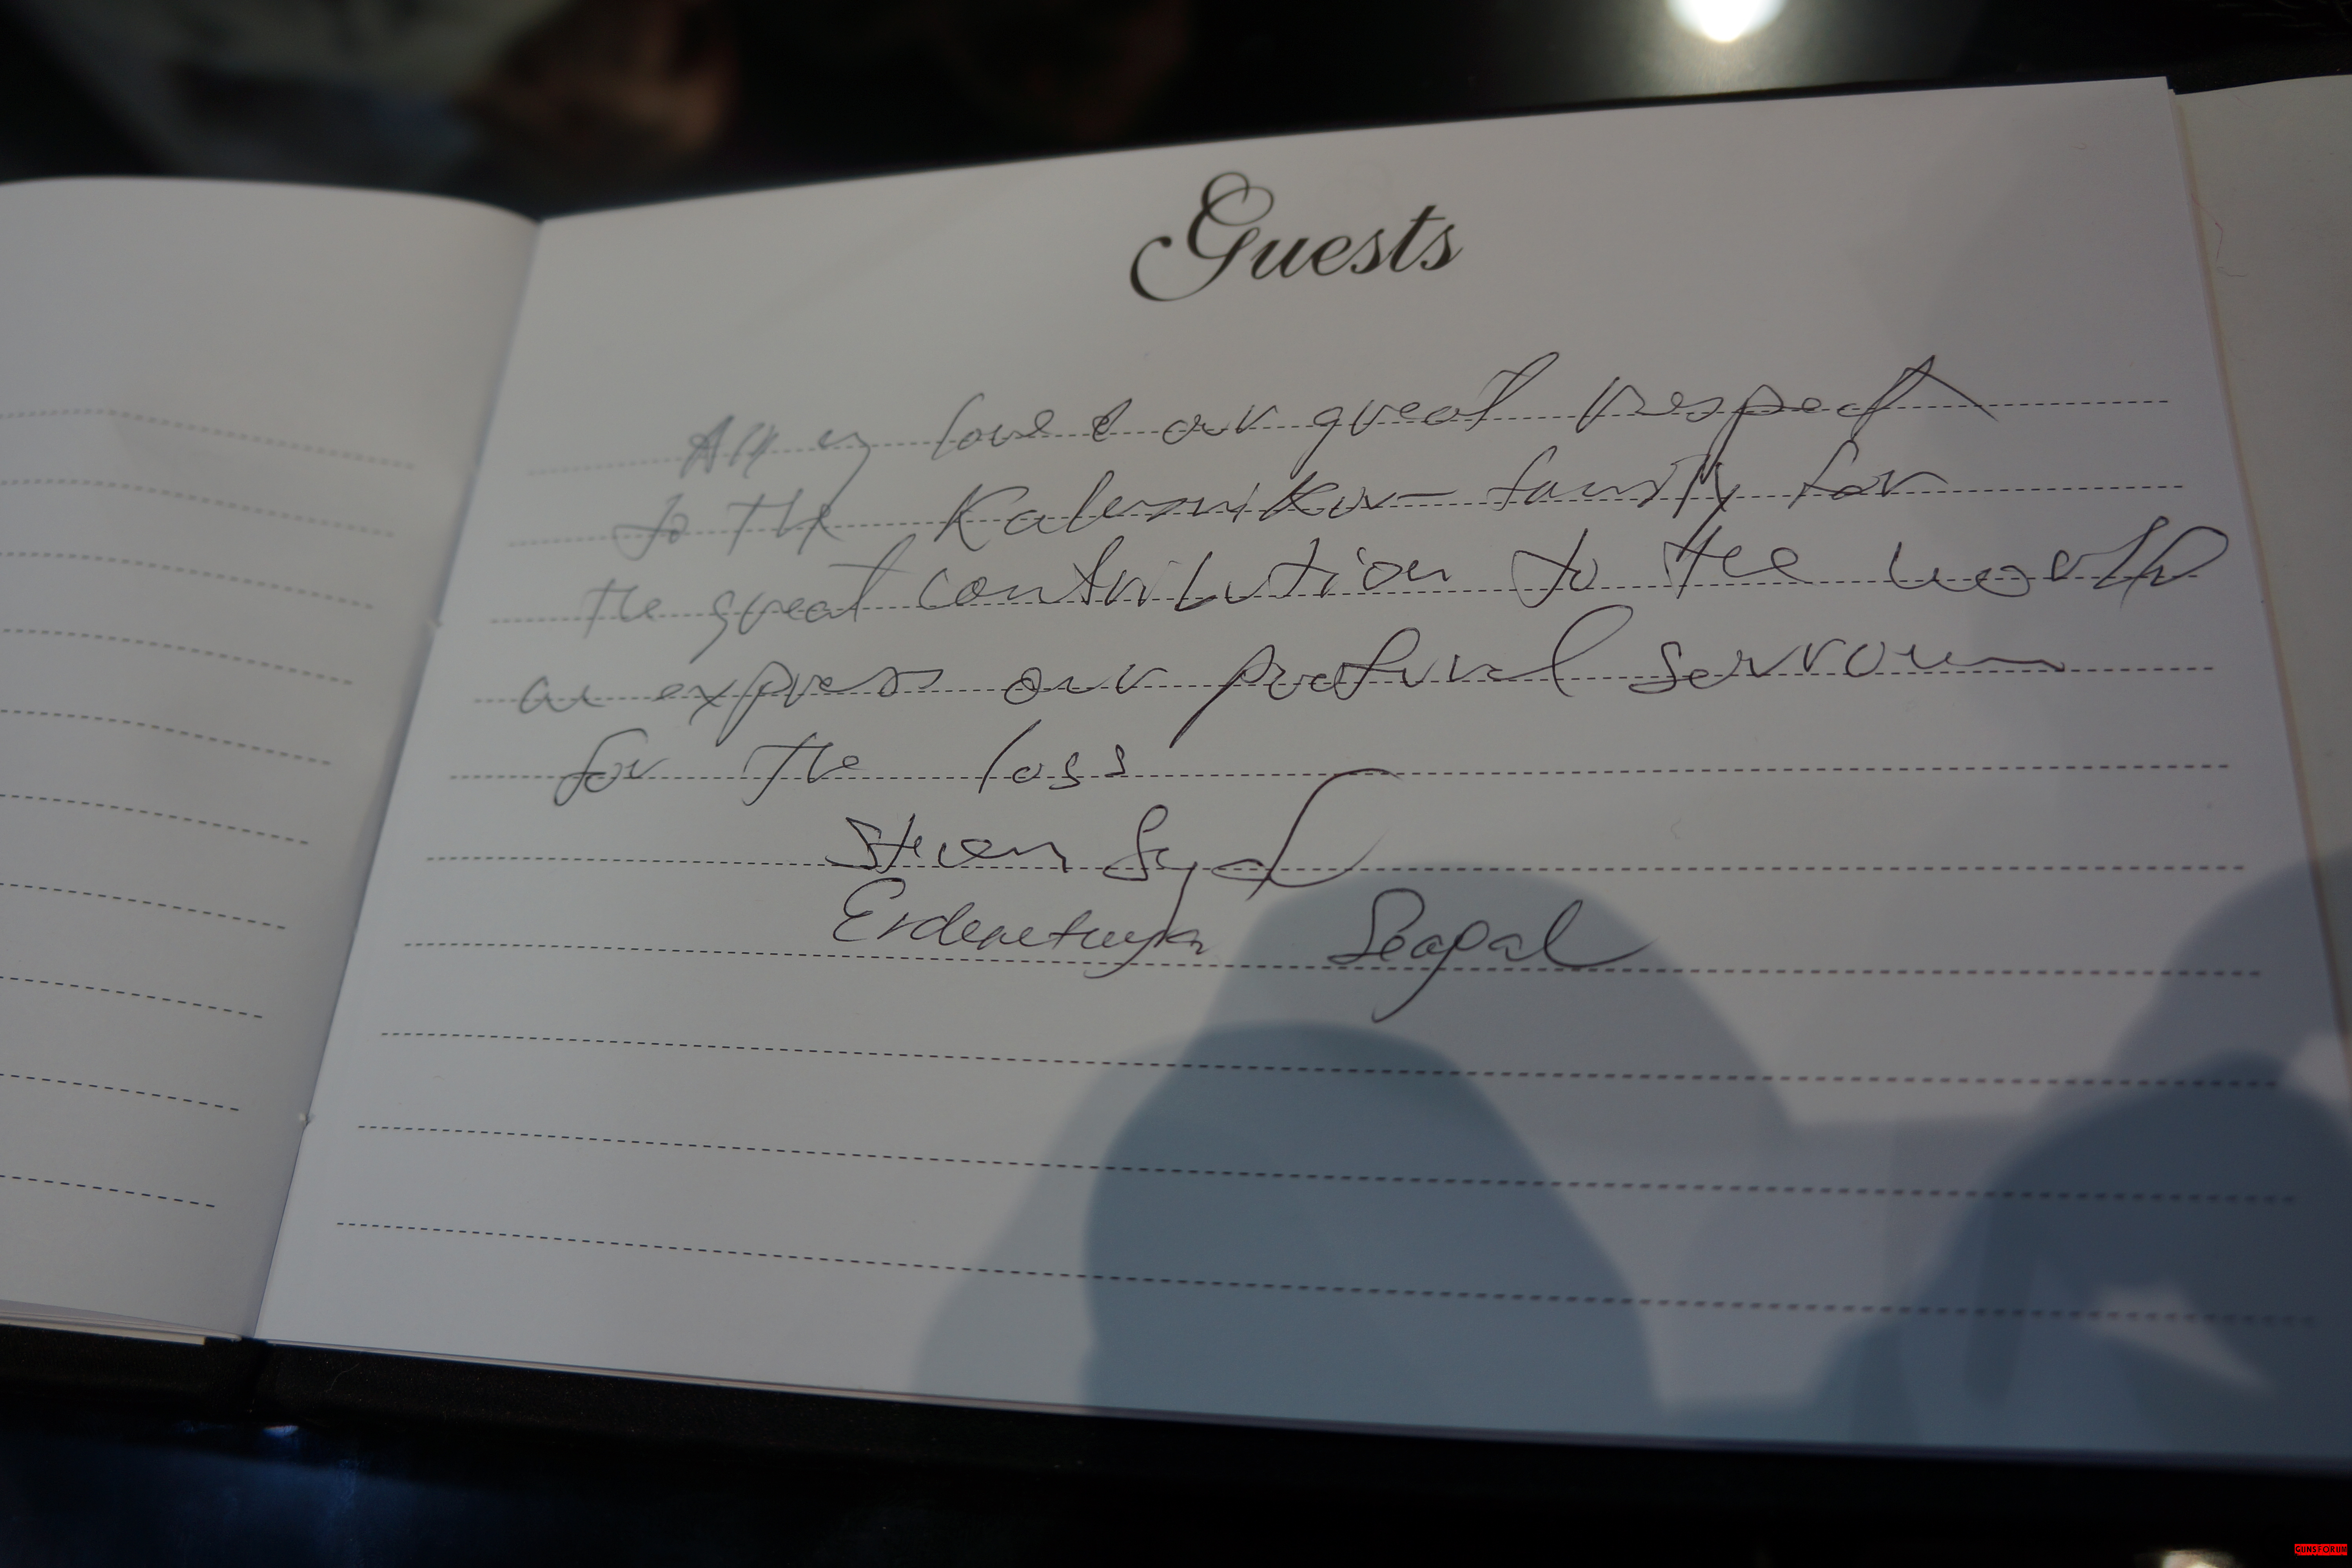 Guests
All my love & our great respect
to the Kalasnikov family for
the great contribution to the world
express our profound sorrow
for the loss
Steven Segal
Erdenetuya Seagal
GUNSFORUM